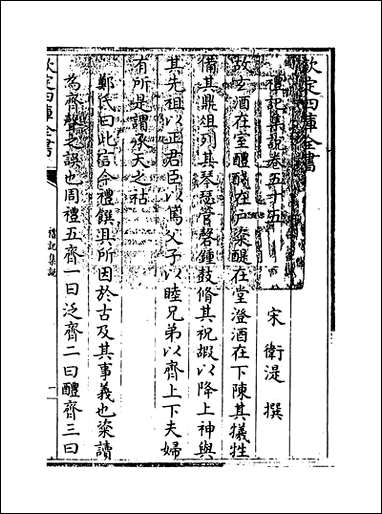 欽定四庫全書
禮記集說卷五十五
宋 衛湜 撰
故玄酒在室醴醆在戶粢醍在堂澄酒在下陳其犧牲
備其鼎俎列其琴瑟管磬鍾鼓脩其祝嘏以降上神與
其先祖以正君臣以篤父子以睦兄弟以齊上下夫婦
有所是謂承天之祜
鄭氏曰此言今禮饌具所因於古及其事義也粢讀
為齊聲之誤也周禮五齊一曰泛齊二曰醴齊三曰
欽定四庫全書
禮記集說
一